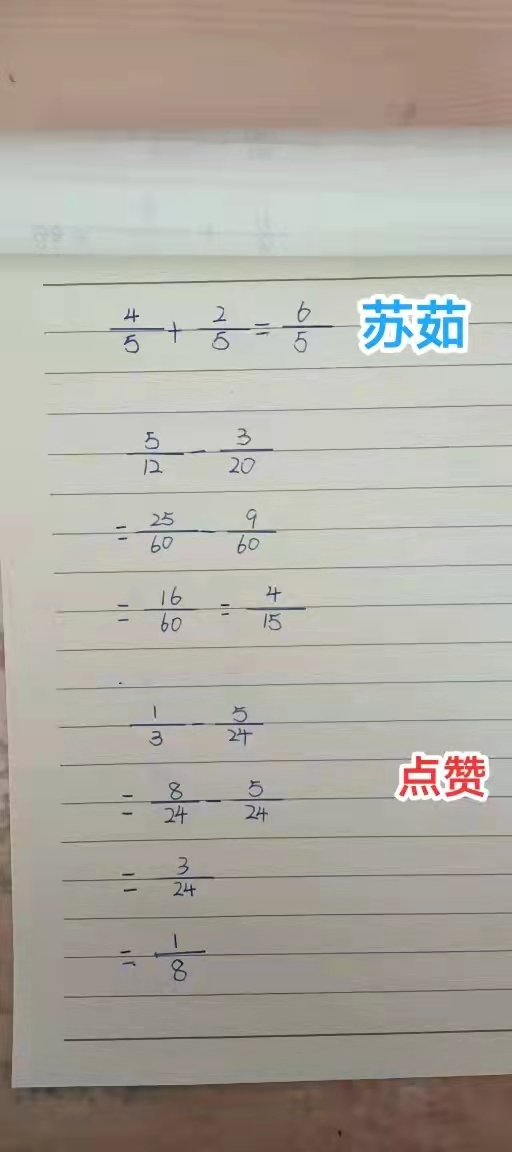 4/5 + 2/5 = 6/5 苏茹
5/12 - 3/20
= 25/60 - 9/60
= 16/60 = 4/15
1/3 - 5/24
点赞
= 8/24 - 5/24
= 3/24
= 1/8